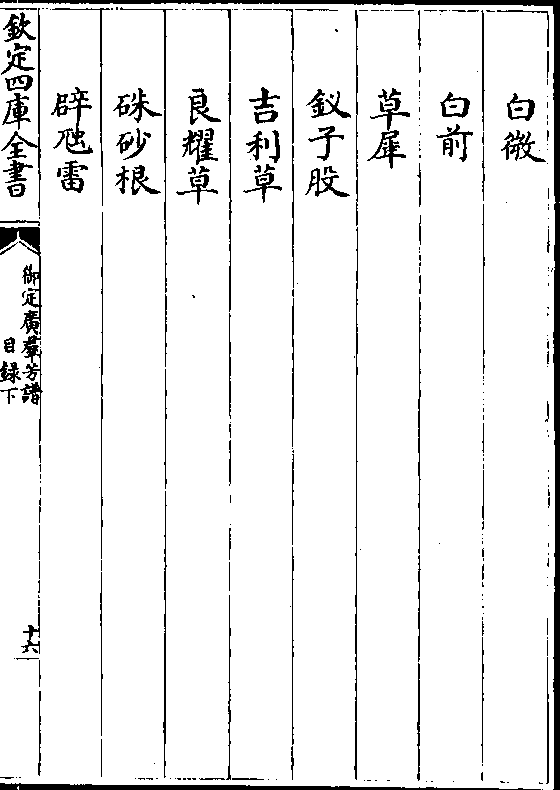 白微
白前
草犀
釵子股
吉利草
良耀草
硃砂根
辟虺雷
欽定四庫全書
御定廣羣芳譜
目録下
十六